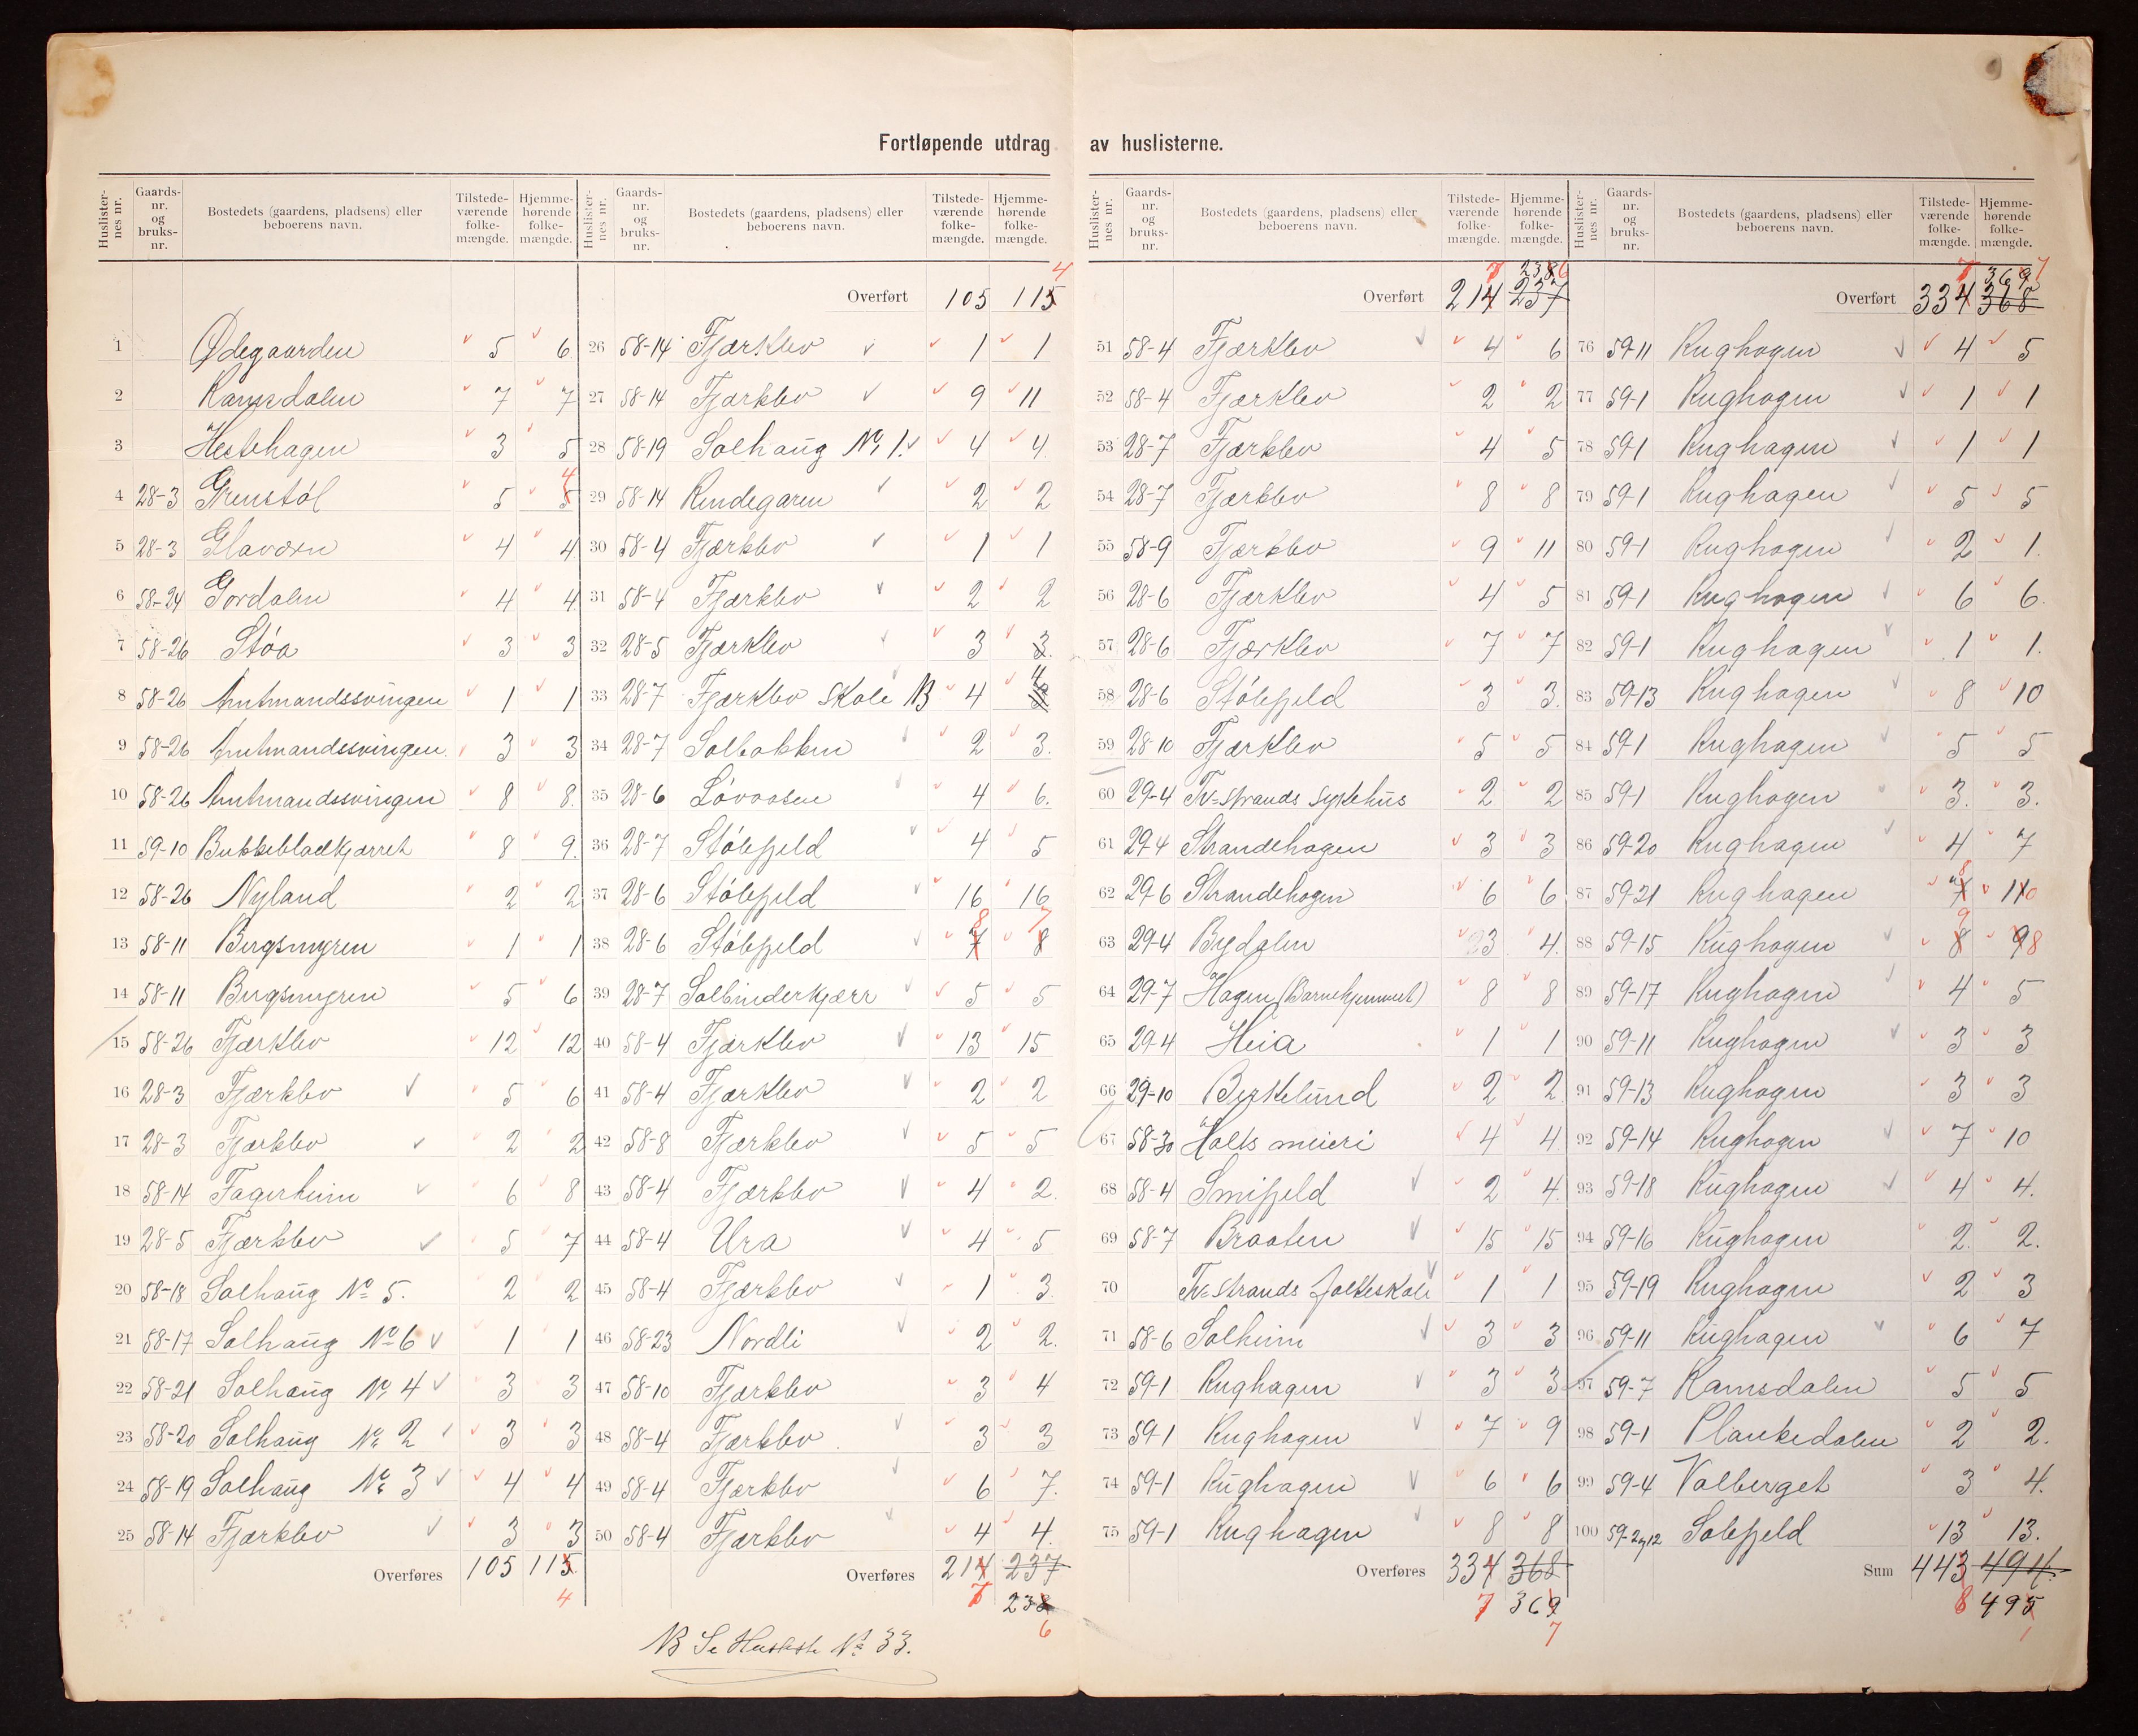 Fortløpende utdrag av huslisterne.
Huslister-nes nr. Gaards-nr. og bruks-nr. Bostedets (gaardens, pladsens) eller beboerens navn. Tilstede-værende folke-mængde. Hjemme-hørende folke-mængde.
1 Ødegaarden 5 6
2 Ramsdalen 7 7
3 Hestehagen 3 5
4 28-3 Grenstøl 5 5 4
5 28-3 4 4
6 58-24 Gordalen 4 4
7 58-26 Støa 3 3
8 58-26 Amtmandssvingen 1 1
9 58-26 Amtmandssvingen 3 3
10 58-26 Amtmandssvingen 8 8.
11 59-10 Bukkebladkjærret 8 9.
12 58-26 Nyland 2 2
13 58-11 Bergsmyren 1 1
14 58-11 Bergsmyren 5 6
15 58-26 Fjærklev 12 12
16 28-3 Fjærklev 5 6
17 28-3 Fjærklev 2 2
18 58-14 Fagerheim 6 8
19 28-5 Fjærklev 5 7
20 58-18 Solhaug No 5. 2 2
21 58-17 Solhaug No 6 1 1
22 58-21 Solhaug No 4 3 3
23 58-20 Solhaug No 2 3 3
24 58-19 Solhaug No 3 4 4
25 58-14 Fjærklev 3 3
Overføres 105 115
4
Huslister-nes nr. Gaards-nr. og bruks-nr. Bostedets (gaardens, pladsens) eller beboerens navn. Tilstede-værende folke-mængde. Hjemme-hørende folke-mængde.
4
Overført 105 115
26 58-14 Fjærklev 1 1
27 58-14 Fjærklev 9 11
28 58-19 Solhaug No 1. 4 4
29 58-14 Rendegaren 2 2
30 58-4 Fjærklev 1 1
31 58-4 Fjærklev 2 2
32 28-5 Fjærklev 3 3.
33 28-7 Fjærklev Skole NB 4
34 28-7 Solbakken 2 3.
35 28-6 Løvaasen 4 6.
36 28-7 Stølefjeld 4 5
37 28-6 Stølefjeld 16 16
38 28-6 Stølefjeld 7 8 8 7
39 28-7 Solbinderkjærr 5 5
40 58-4 Fjærklev 13 15
41 58-4 Fjærklev 2 2
42 58-8 Fjærklev 5 5
43 58-4 Fjærklev 4 2.
44 58-4 Ura 4 5
45 58-4 Fjærklev 1 3.
46 58-23 Nordli 2 2.
47 58-10 Fjærklev 3 4
48 58-4 Fjærklev 3 3
49 58-4 Fjærklev 6 7.
50 58-4 Fjærklev 4 4.
Overføres 214 237
7 238
6
NB Se Husliste No 33.
Huslister-nes nr. Gaards-nr. og bruks-nr. Bostedets (gaardens, pladsens) eller beboerens navn. Tilstede-værende folke-mængde. Hjemme-hørende folke-mængde.
7 238 6
Overført 214 237
51 58-4 Fjærklev 4 6
52 58-4 Fjærklev 2 2
53 28-7 Fjærklev 4 5
54 28-7 Fjærklev 8 8
55 58-9 Fjærklev 9 11
56 28-6 Fjærklev 4 5
57 28-6 Fjærklev 7 7
58 28-6 Stølefjeld 3 3.
59 28-10 Fjærklev 5 5
60 29-4 Tv=strands sykehus 2 2
61 29-4 Strandehagen 3 3
62 29-6 Strandehagen 6 6
63 29-4 Bydalen 3 4.
64 29-7 Hagen (Barnehjemmet) 8 8
65 29-4 Heia 1 1
66 29-10 Birkelund 2 2
67 58-30 Holts meieri 4 4
68 58-4 Smifjeld 2 4.
69 58-7 Braaten 15 15
70 Tv=strands folkeskole 1 1
71 58-6 Solheim 3 3
72 59-1 Rughagen 3 3
73 59-1 Rughagen 7 9
74 59-1 Rughagen 6 6
75 59-1 Rughagen 8 8
Overføres 334 368
7 369
7
Huslister-nes nr. Gaards-nr. og bruks-nr. Bostedets (gaardens, pladsens) eller beboerens navn. Tilstede-værende folke-mængde. Hjemme-hørende folke-mængde.
7 369 7
Overført 334 368
76 59-11 Rughagen 4 5
77 59-1 Rughagen 1 1
78 59-1 Rughagen 1 1
79 59-1 Rughagen 5 5
80 59-1 Rughagen 2 1.
81 59-1 Rughagen 6 6.
82 59-1 Rughagen 1 1.
83 59-13 Rughagen 8 10
84 59-1 Rughagen 5 5
85 59-1 Rughagen 3. 3.
86 59-20 Rughagen 4 7
87 59-21 Rughagen 7 8 11 0
88 59-15 Rughagen 8 9 9 8
89 59-17 Rughagen 4 5
90 59-11 Rughagen 3 3
91 59-13 Rughagen 3 3
92 59-14 Rughagen 7 10
93 59-18 Rughagen 4 4.
94 59-16 Rughagen 2. 2.
95 59-19 Rughagen 2 3
96 59-11 Rughagen 6 7
97 59-7 Ramsdalen 5 5
98 59-1 Plankedalen 2 2.
99 59-4 Valberget 3 4.
100 59-2 og 12 Solefjeld 13 13.
Sum 443 494.
8 495
1